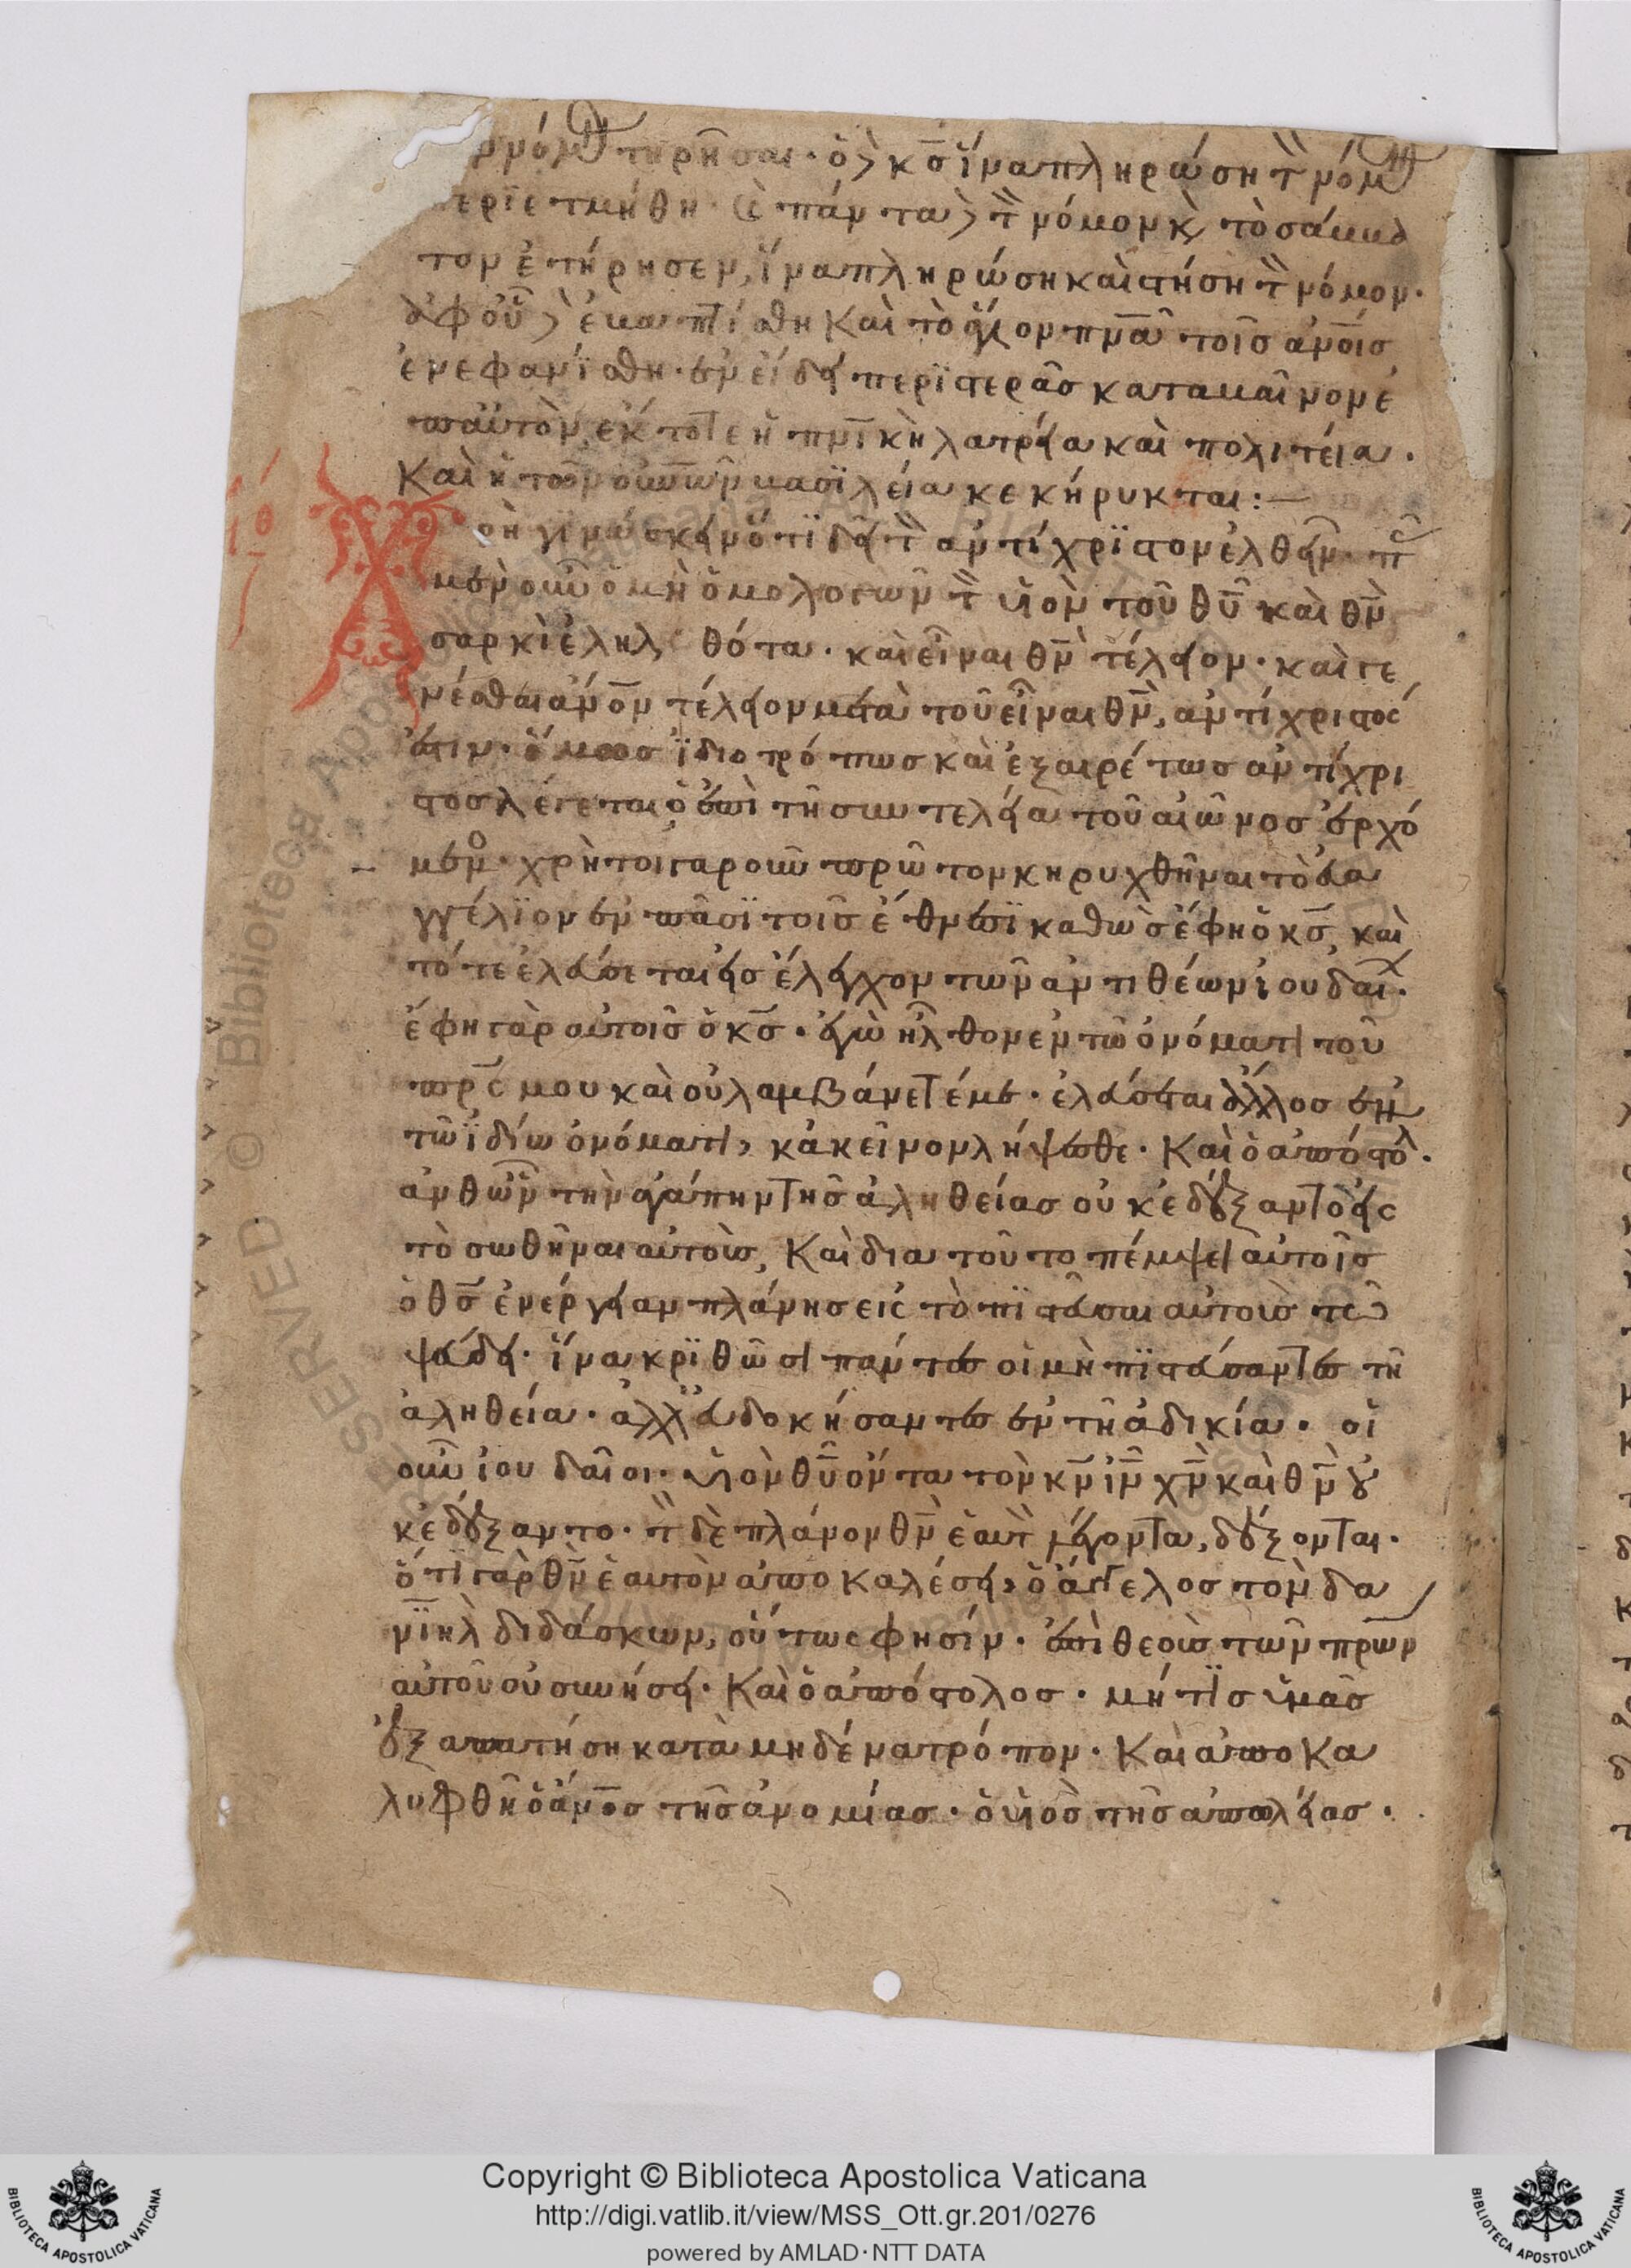 νόμου τηρῆσαι· ὁ δὲ κ̅ς̅ ἵνα πληρώση τὸν νόμον
περϊετμήθη· καὶ πάντα δὲ τὸν νόμον καὶ τὸ σάββα
τον ἐτήρησεν, ἵνα πληρώση καὶ στήση τὸν νόμον·
ἀφοῦ δὲ ἐβαπτίσθη καὶ τὸ ἅγιον π̅ν̅α̅ τοῖς ἀν̅ο̅ις
ἐνεφανΐσθη· ἐν εἴδει περϊστερᾶς καταβαῖνον ἐ
π αὐτὸν, ἐκ τότε ἡ πν̅ικὴ λατρεία καὶ πολιτεία·
Καὶ ἡ τῶν οὐ̅ν̅ῶν βασϊλεία κεκήρυκται:—
ιθ
Χρὴ γϊνώσκειν ὅτϊ δεῖ τὸν ἀντίχρϊστον ἐλθεῖν· πᾶς
μὲν οὖν ὁ μὴ ὁμολογῶν τὸν υἱὸν τοῦ θ̅υ̅ καὶ θ̅ν̅
σαρκὶ ἐληλυθότα· καὶ εἶναι θ̅ν̅ τέλειον· καὶ γε
νέσθαι ἄν̅ο̅ν τέλειον μετὰ τοῦ εἶναι θ̅ν̅, ἀντίχριστός
ἐστιν· ὅμως ἰδιοτρόπως καὶ ἐξαιρέτως ἀντίχρι
στος λέγεται ὁ ἐπὶ τῆ συντελεία τοῦ αἰῶνος ἐρχό
μενος· χρὴ τοιγαροῦν πρῶτον κηρυχθῆναι τὸ εὐα
γγέλϊον ἐν πᾶσϊ τοῖς ἔθνεσϊ καθὼς ἔφη ὁ κ̅ς̅, καὶ
τότε ἐλεύσεται εἰς ἔλεγχον τῶν ἀντιθέων ἰουδαίων·
ἔφη γὰρ αὐτοῖς ὁ κ̅ς̅· ἐγὼ ἦλθον ἐν τῶ ὀνόματι τοῦ
πρ̅ς μου καὶ οὐ λαμβάνετέ με· ἐλεύσεται ἄλλος ἐν
τῶ ϊδίω ὀνόματι, κἀκεῖνον λήψεσθε· Καὶ ὁ ἀπόστολος·
ἀνθὧν τὴν ἀγάπην τῆς ἀληθείας οὐκ ἐδέξαντο εἰς
τὸ σωθῆναι αὐτοὺς, Καὶ δια τοῦτο πέμψει αὐτοῖς
ὁ θ̅ς̅ ἐνέργειαν πλάνης εἰς τὸ πϊστεῦσαι αὐτοὺς τῶ
ψεύδει· ἵνα κρϊθῶσι πάντες οἱ μὴ πϊστεύσαντες τῆ
ἀληθεία· ἀλλ εὐδοκήσαντες ἐν τῆ ἀδικία· οἱ
οὖν ἰουδαῖοι· υἱὸν θ̅υ̅ ὄντα τὸν κ̅ν̅ ι̅ν̅ χ̅ν̅ καὶ θ̅ν̅ οὐ
κ ἐδέξαντο· τὸν δὲ πλάνον θ̅ν̅ ἑαυτὸν λέγοντα, δέξονται·
ὅτι γὰρ θ̅ν̅ ἑαυτὸν ἀποκαλέσει, ὁ ἄγγελος τὸν δα
νϊὴλ διδάσκων, οὕτως φησίν· ἐπὶ θεοὺς τῶν πρ̅ων
αὐτοῦ οὐ συνήσει· Καὶ ὁ ἀπόστολος· μή τϊς ὑμᾶς
ἐξαπατήση κατὰ μηδένα τρόπον· Καὶ ἀποκα
λυφθῆ ὁ ἄν̅ο̅ς τῆς ἀνομίας· ὁ υἱὸς τῆς ἀπωλείας·
Copyright © Biblioteca Apostolica Vaticana
http://digi.vatlib.it/view/MSS_Ott.gr.201/0276
powered by AMLAD·NTT DATA
BIBLIOTECA APOSTOLICA VATICANA
BIBLIOTECA APOSTOLICA VATICANA